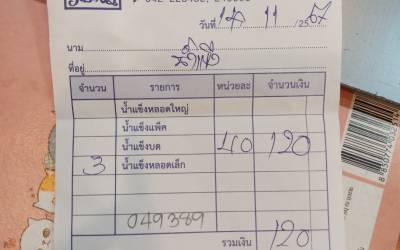 วันที่ 12 / 11 /2567
นาม
ที่อยู่
จำนวน รายการ หน่วยละ จำนวนเงิน
น้ำแข็งหลอดใหญ่
น้ำแข็งแพ็ค
น้ำแข็งบด 40 120
3 น้ำแข็งหลอดเล็ก
049389
รวมเงิน 120